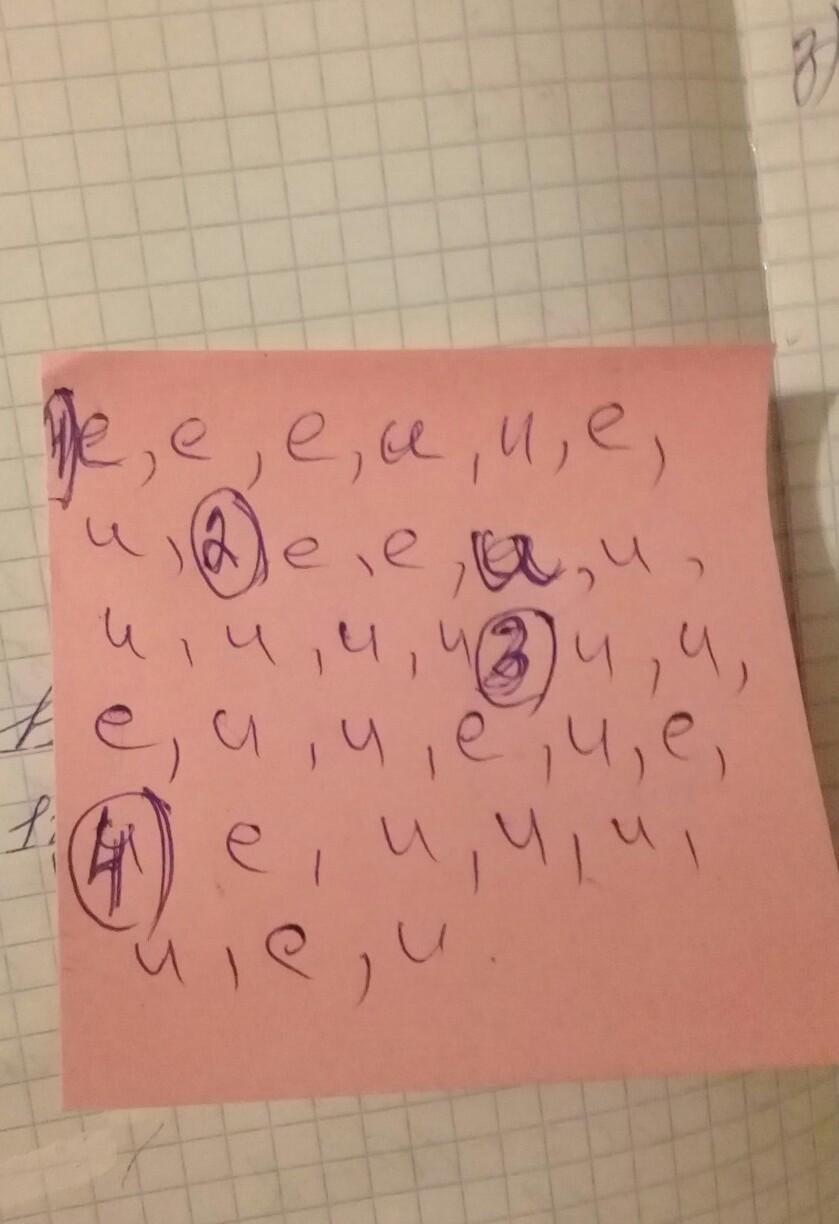 1) е, е, е, и, и, е,
и, 2) е, е, и, и,
и, и, и, и 3) и, и,
е, и, и, е, и, е,
4) е, и, и, и,
и, е, и.